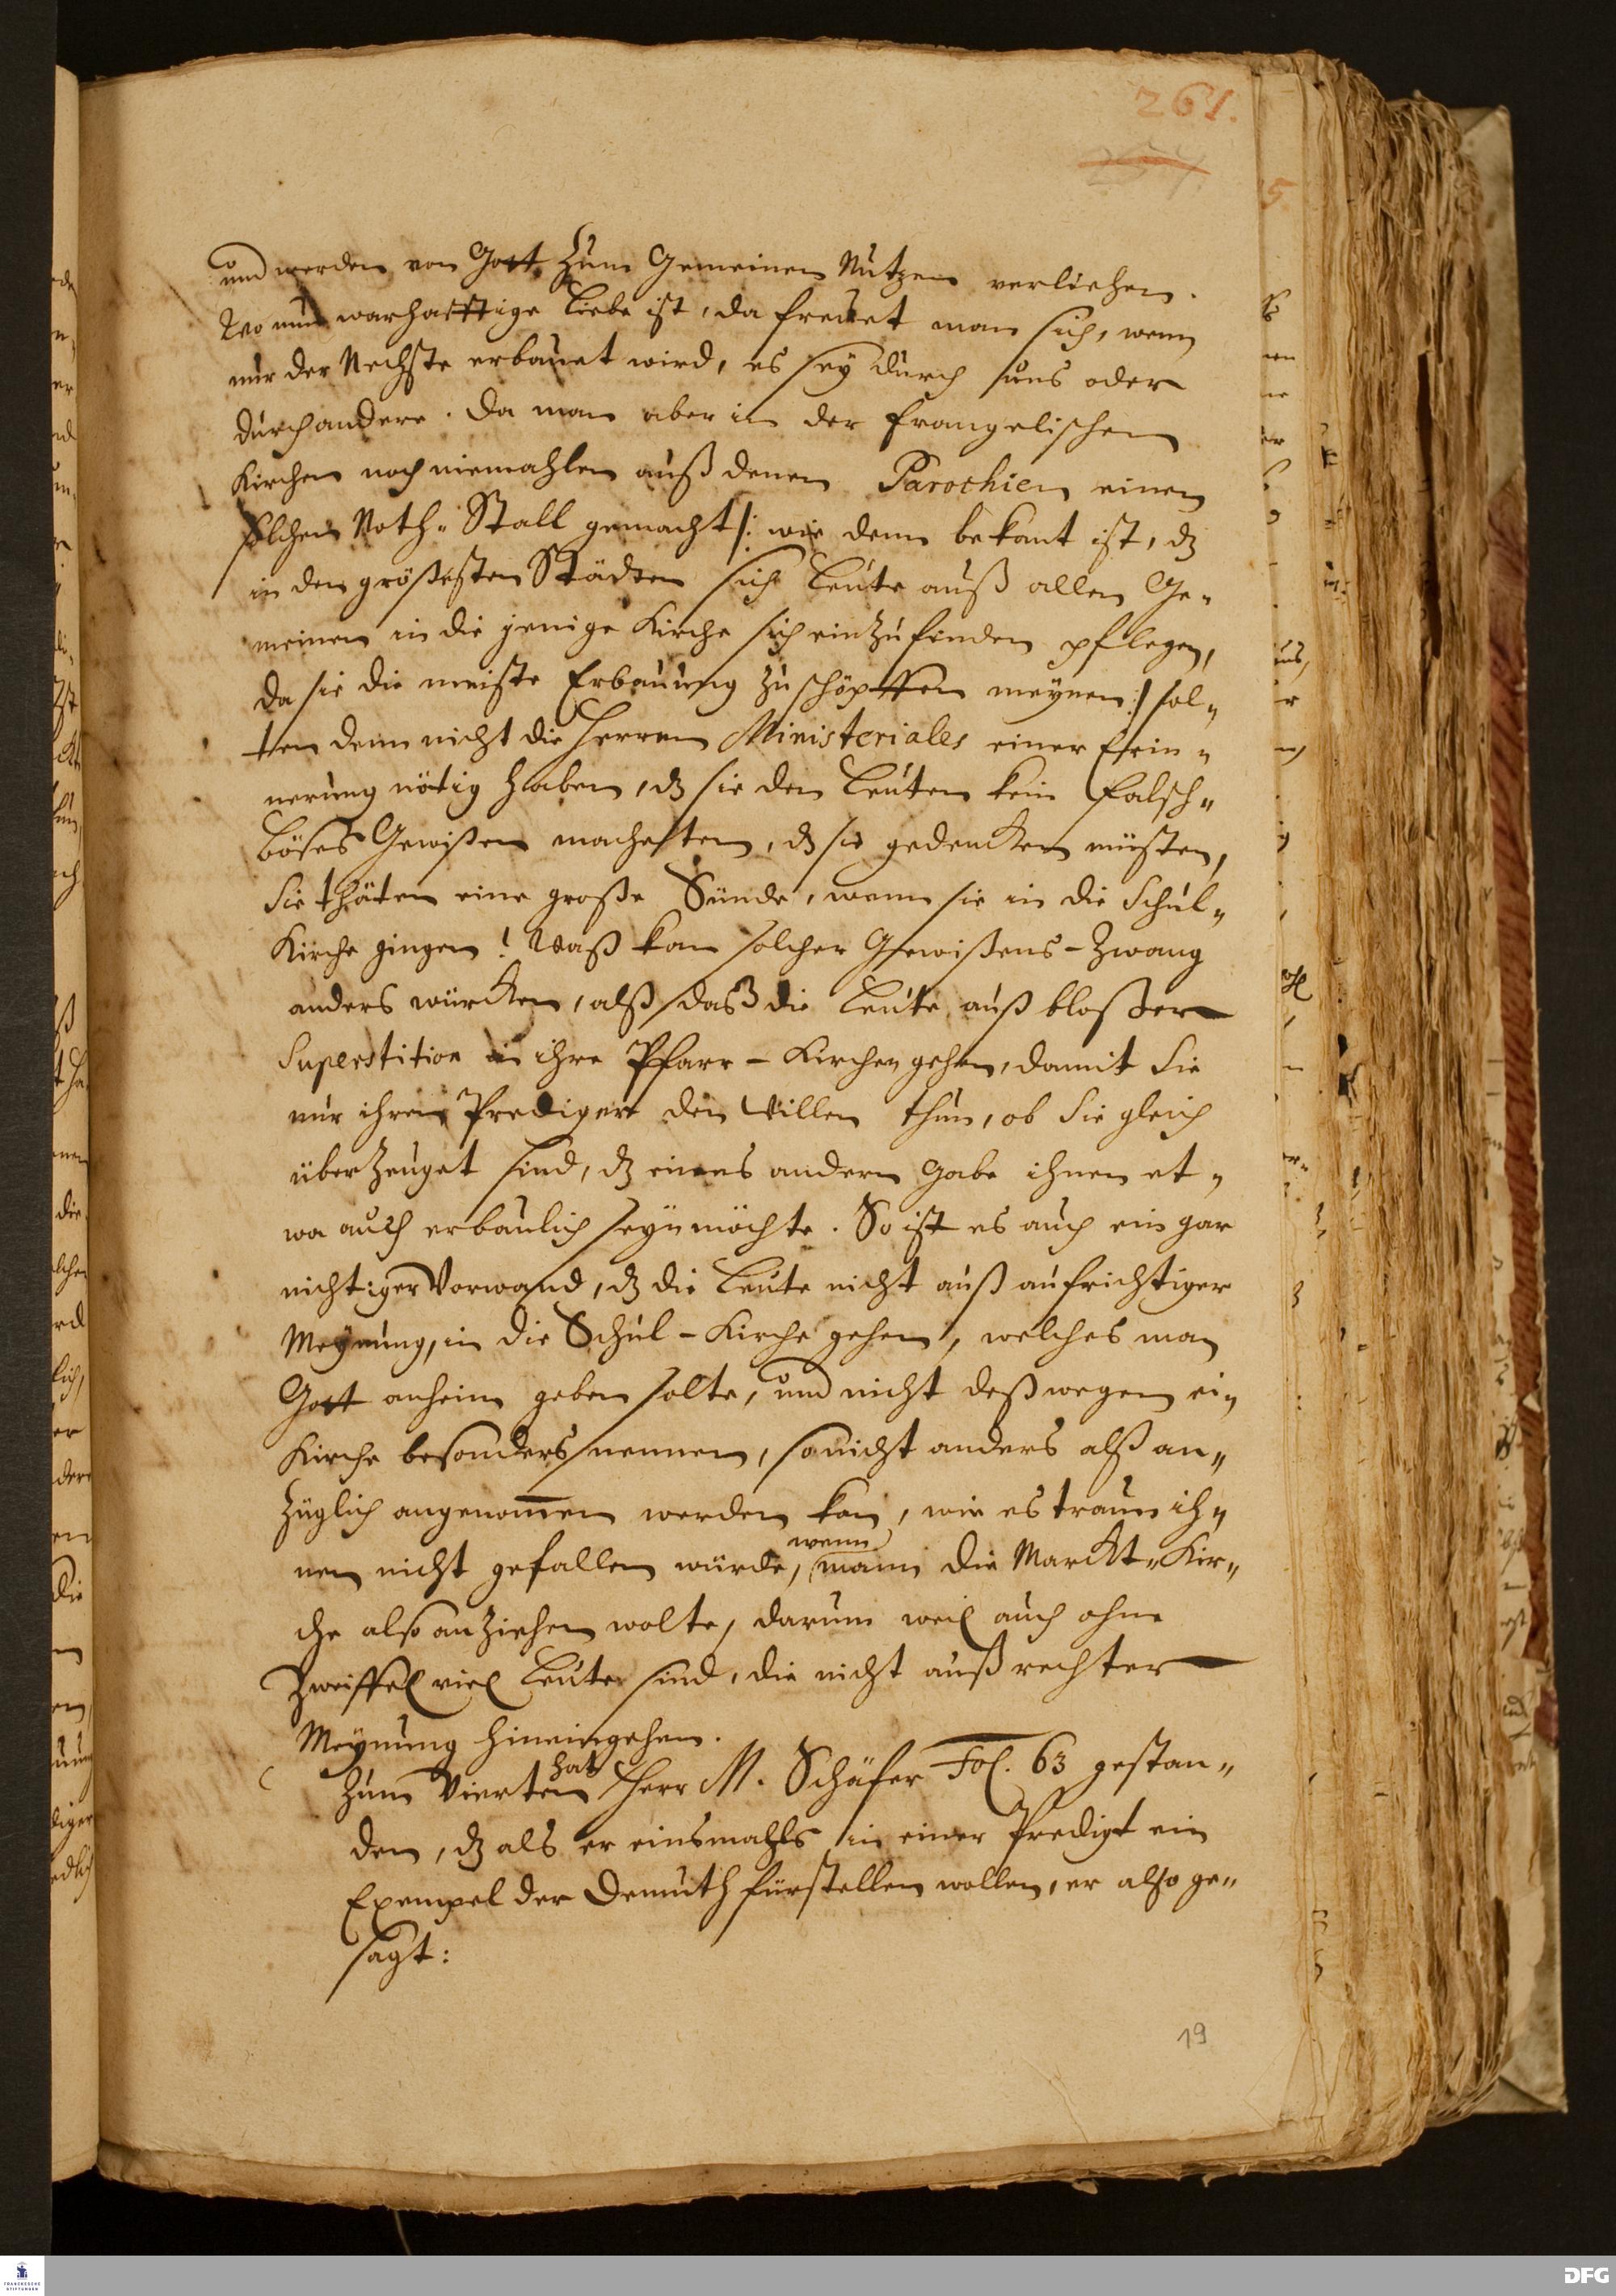 261.
und werden von Gott zum Gemeinen Nutzen verliehen.
Wo nun warhafftige Liebe ist, da freuet man sich, wenn
nur der Nechste erbauet wird, es sey durch uns oder
durch andere. Da man aber in der Evangelischen
Kirchen noch niemahlen auß denen Parochien einen
solchen Noth-Stall gemacht /: wie denn bekant ist, dz
in den grösesten Städten sich Leute auß allen Ge-
meinen in die jenige Kirche sich einzufinden pflegen,
da sie die meiste Erbauung zu schöpffen meynen :/ sol-
ten denn nicht die Herren Ministeriales einer Erin-
nerung nötig haben, dz sie den Leuten kein falsch-
böses Gewißen machesten, dz sie gedencken müsten,
Sie thäten eine große Sünde, wenn sie in die Schul-
Kirche gingen! Waß kan solcher Gewißens-Zwang
anders würcken, alß daß die Leute auß bloßer
Superstition in ihre Pfarr-Kirchen gehen, damit Sie
nur ihren Prediger den Willen thun, ob Sie gleich
überzeuget sind, dz eines andern Gabe ihnen et-
wa auch erbaulich seyn möchte. So ist es auch ein gar
nichtiger Vorwand, dz die Leute nicht auß aufrichtiger
Meynung, in die Schul-Kirche gehen, welches man
Gott anheim geben solte, und nicht deßwegen ein
Kirche besonders nennen, so nicht anders alß an-
züglich angenommen werden kan, wie es traun ih-
nen nicht gefallen würde, wenn mann die Marckt-Kir-
che also anziehen wolte, darum weil auch ohne
Zweiffel viel Leute sind, die nicht auß rechter
Meynung hineingehen.
Zum Vierten hat Herr M. Schäfer Fol. 63 gestan-
den, dz als er einsmahls in einer Predigt ein
Exempel der Demuth fürstellen wollen, er also ge-
sagt:
19
FRANCKESCHE STIFTUNGEN
DFG